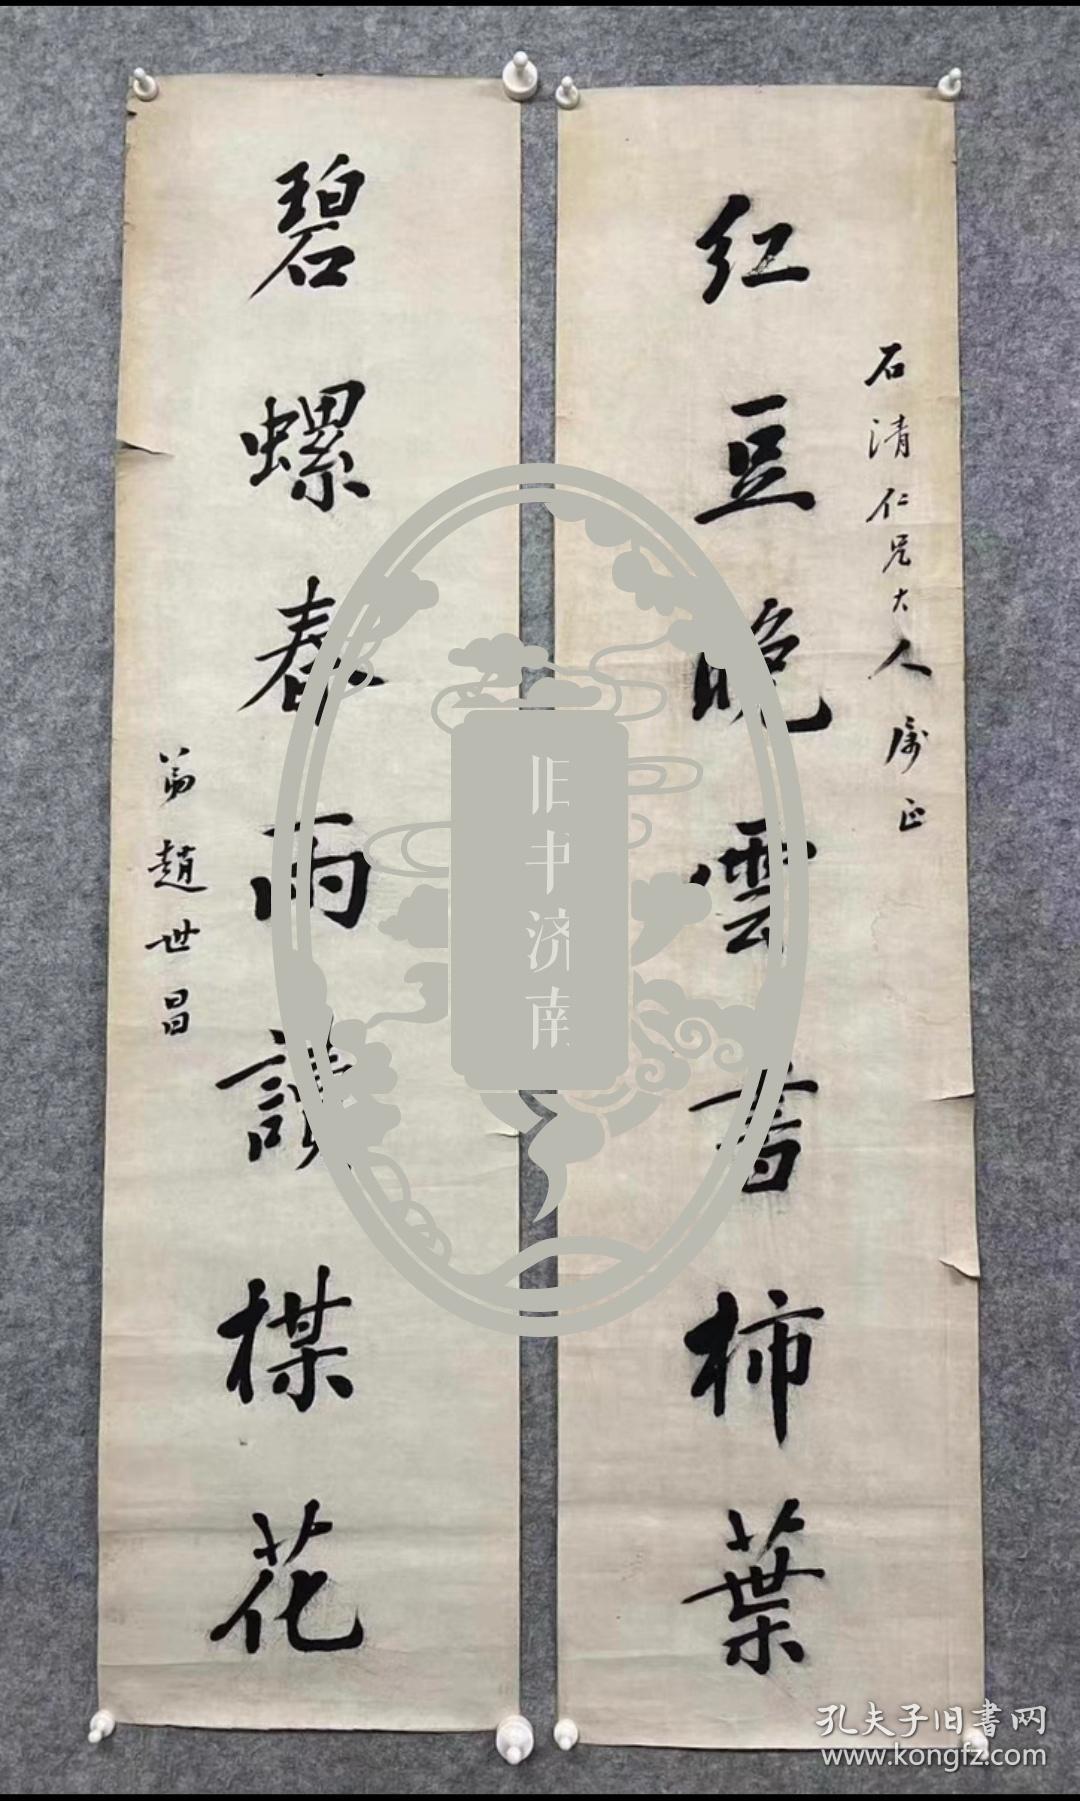 石清仁兄大人属正
红豆晚雲書柿葉
碧螺春雨讀楳花
弟趙世昌
旧书济南
孔夫子旧書网
www.kongfz.com